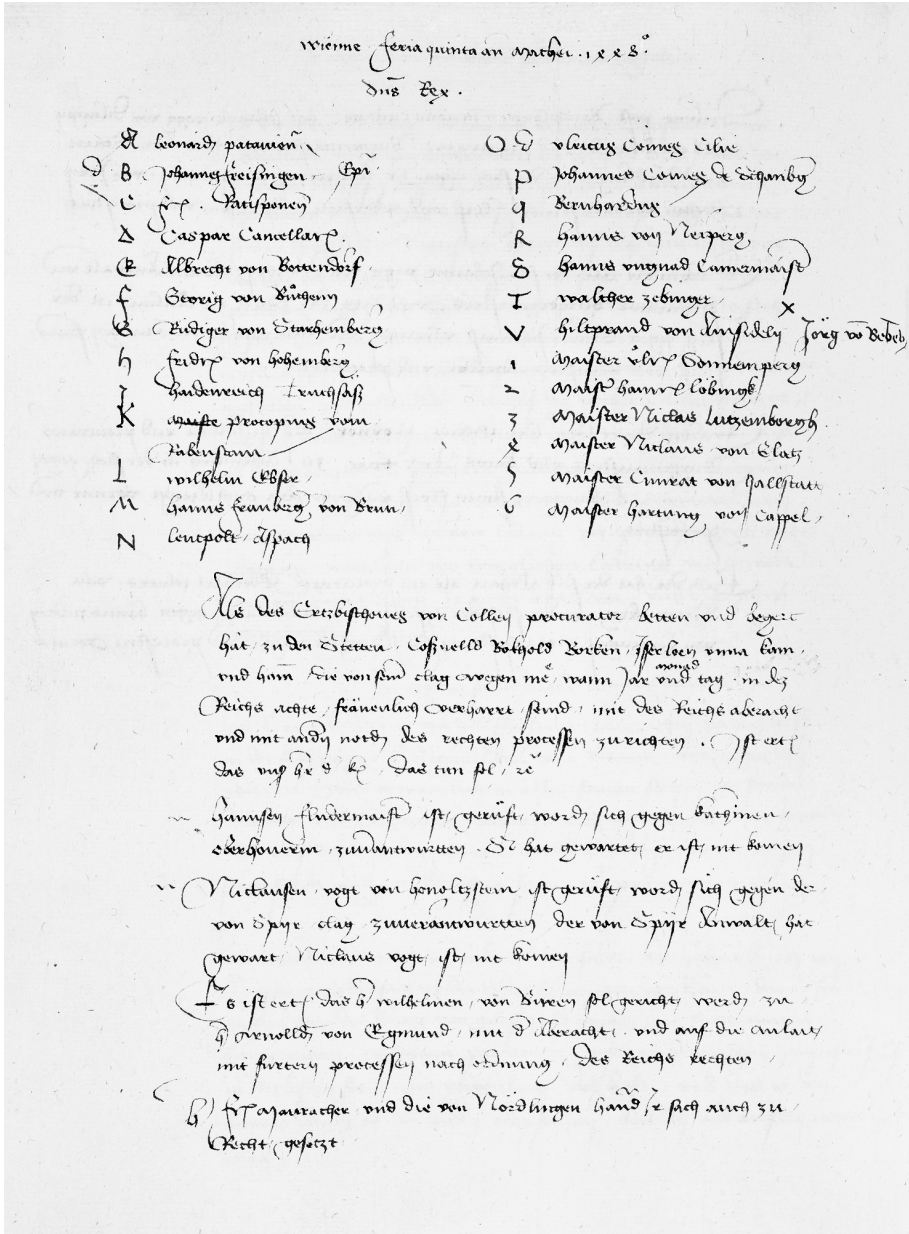 wienne feria quinta an Mathei · 1445°
Dns Rex ·
A leonard patavien
B Johannes freisingen · Epi
C frid · Ratisponen
D Caspar Cancellari
E Albrecht von Pottendorf
F Georig von
G Rudiger von Starhemberg
H fridr von hohemberg
J haidenreich Truchsäß
K procopius vom
Rabenstain
L wilhelm Ebser
M hanns franberg von Brun
N leutpolt Aspach
O vlricus Comes Cilie
P Johannes Comes de Schaunberg
Q Bernhardus
R hanns von Neiperg
S hanns vngnad Camermaist
T walther zebinger
V hiltprand von Ainsideln Jörg vo Bebeb
1 Maister vlr Sonnemperg
2 Maist hainr löbingk
3 Maister Niclas lutzemborgh
4 Maister Niclaus von Glatz
5 Maister Cunrat von hallstatt
6 Maister hartung von Cappel
Als des Ertzbischoues von Collen procurator betten vnd begert
hat, zu den Stetten · Coßuelld Bokhold Borken · Iserloen vnna kam
vnd ham die von seiner clag wegen me, wann Jar monad vnd tag in dez
Reichs achte fräuenlich verharrt seind, mit des Reichs aberacht
vnd mit andn notd des rechten processen zurichten · Ist ert
das vns hr d k das tun sol ꝛc
hannsen fludermaist ist gerüft word sich gegen kathrinen
oberhouerin zuuantwurtten · Si hat gewartet er ist nit komen
Niclausen vogt von honoltzstein ist gerüft word sich gegen der
von Spyr clag zuuerantwurtten der von Spyr Anwalt hat
gewart Niclaus vogt ist nit komen
Es ist ert das h wilhelmen von Büren sol gericht werd zu
h Arnolld von Egmund mit d Aberacht vnd auf die anlait
mit furtern processen nach ordnung des Reichs rechten
h frid Mauracher vnd die von Nördlingen hand Ir sach auch zu
Recht gesetzt